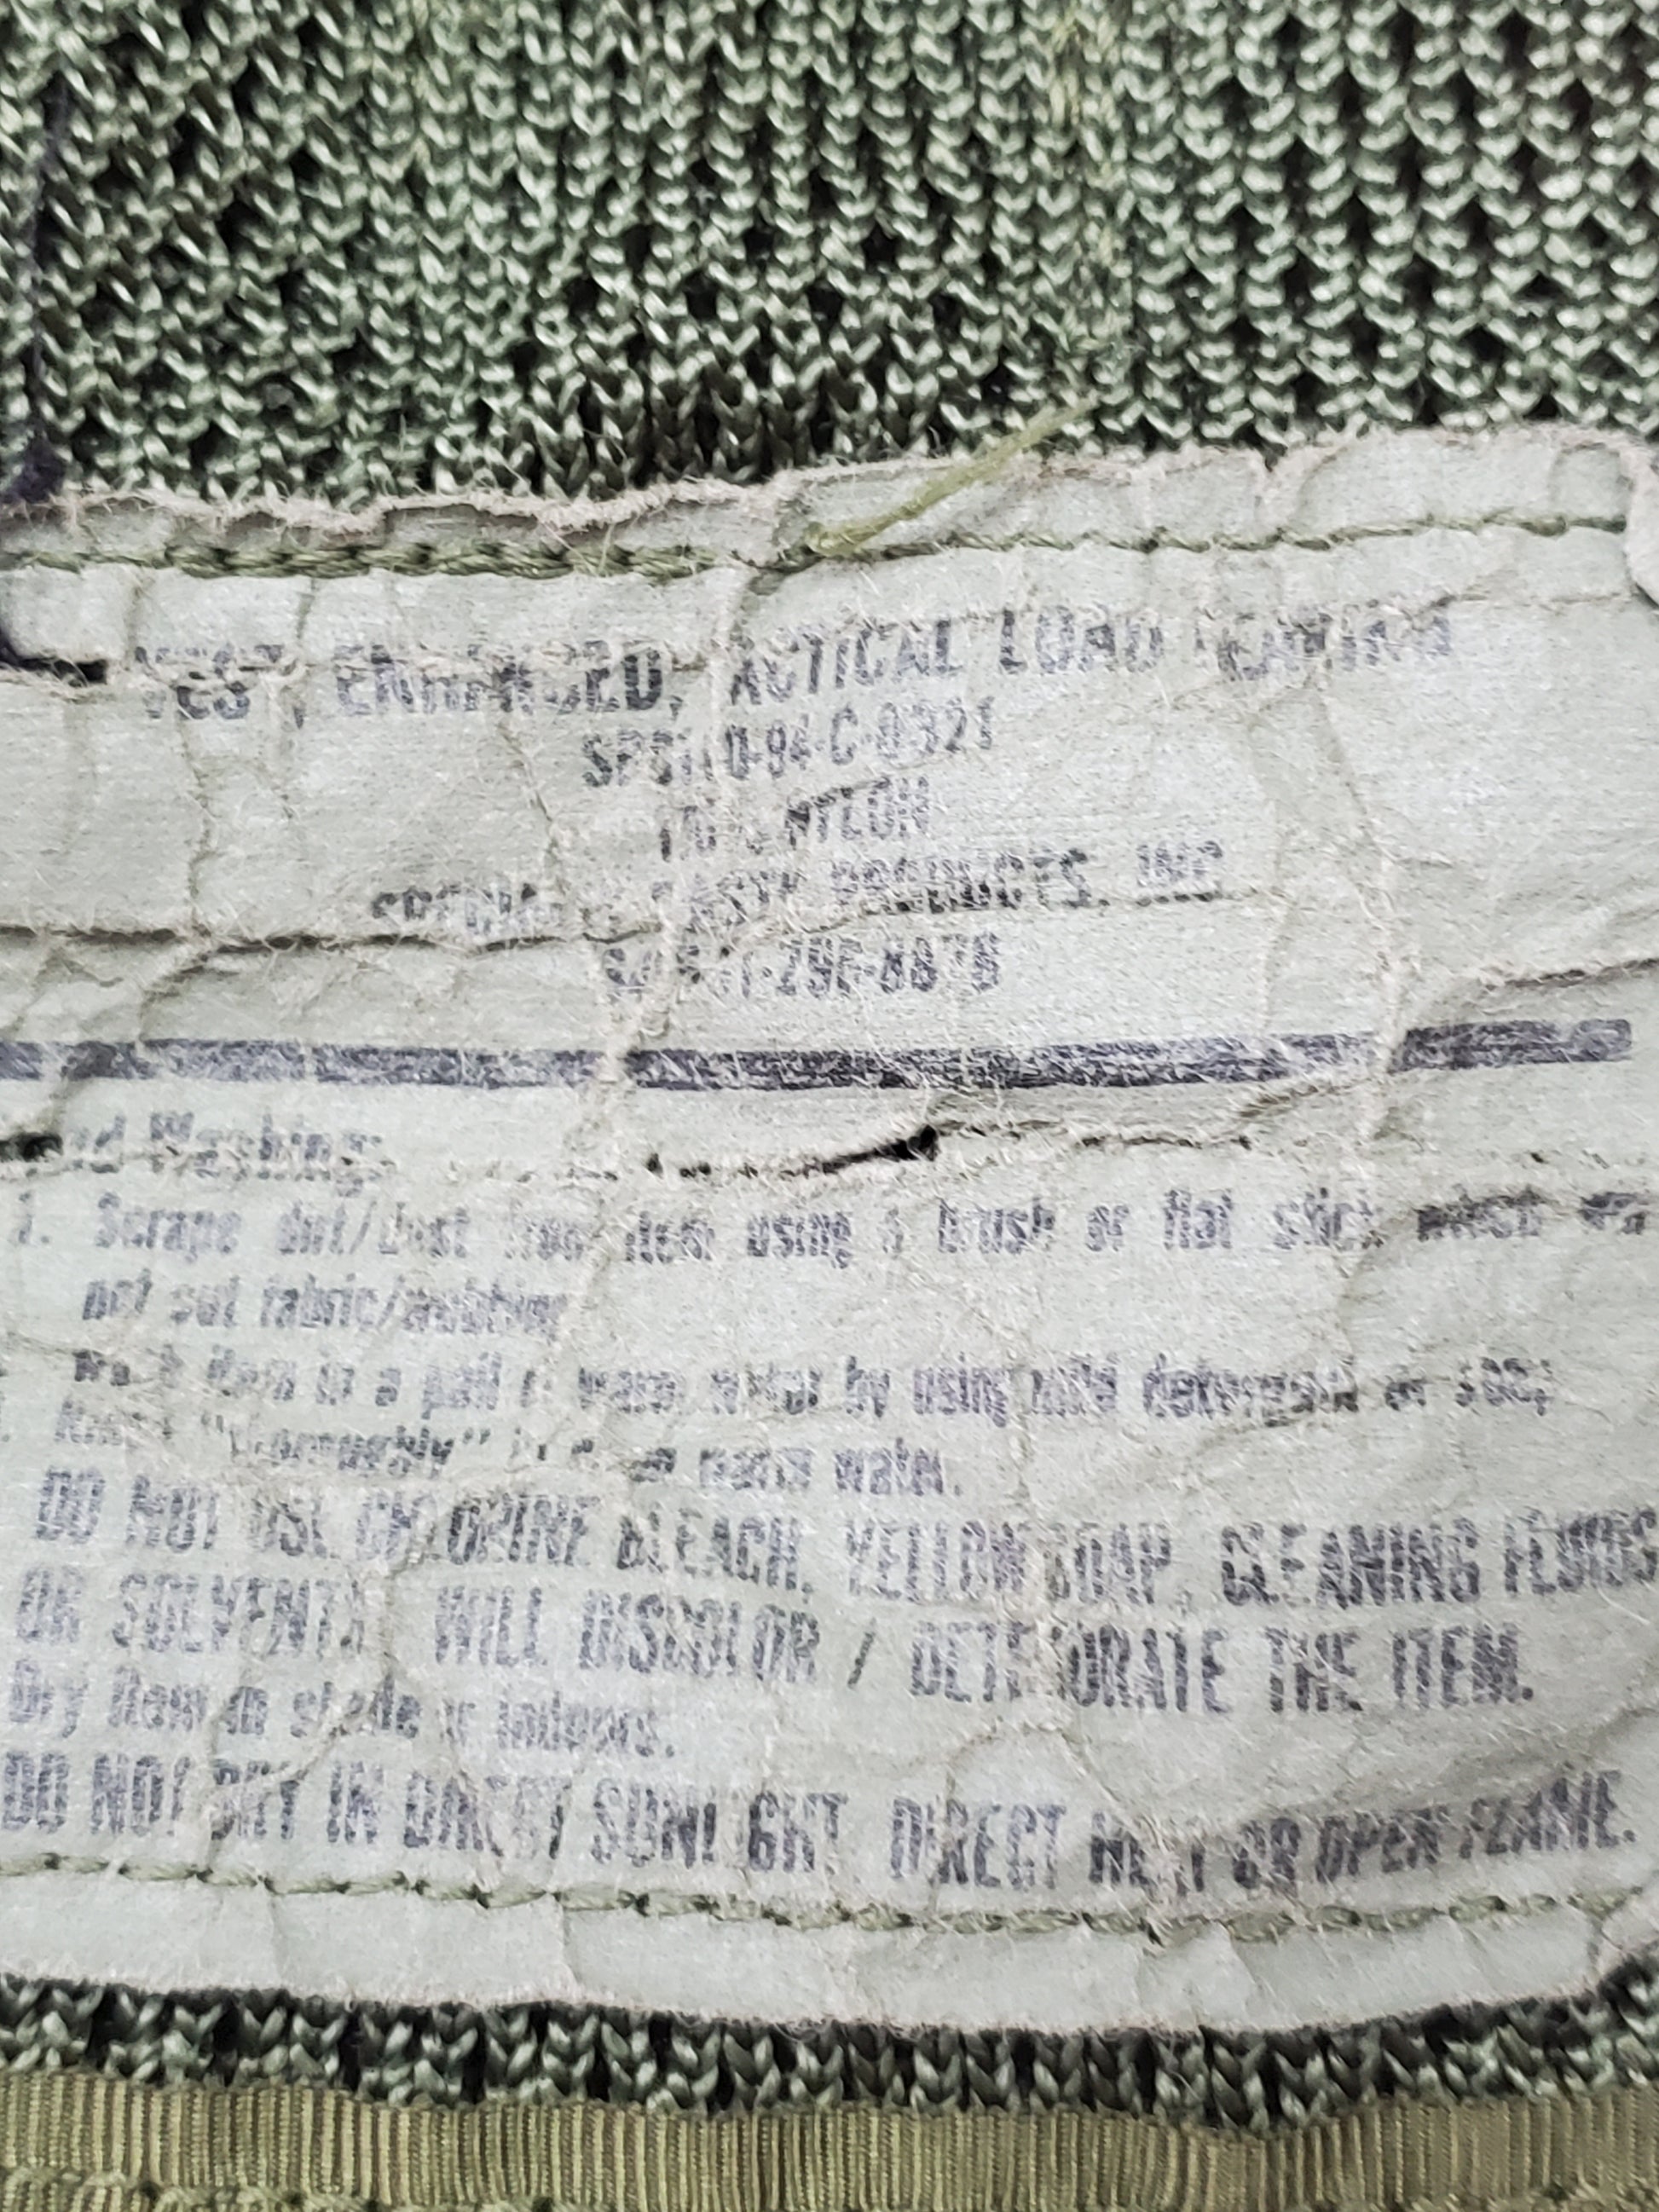 VEST, ENHANCED, TACTICAL LOAD BEARING
SPO100-94-C-0321
100% NYLON
PRODUCTS, INC
Washing:
1. Scrape dirt/dust from item using a brush or flat stick which
not cut fabric/webbing
Wash item in a pail of warm water by using mild detergent or soap
Rinse "thoroughly" in clean warm water.
DO NOT USE CHLORINE BLEACH, YELLOW SOAP, CLEANING FLUIDS
OR SOLVENTS WILL DISCOLOR / DETERIORATE THE ITEM.
Dry item in shade or indoors.
DO NOT DRY IN DIRECT SUNLIGHT, DIRECT HEAT OR OPEN FLAME.